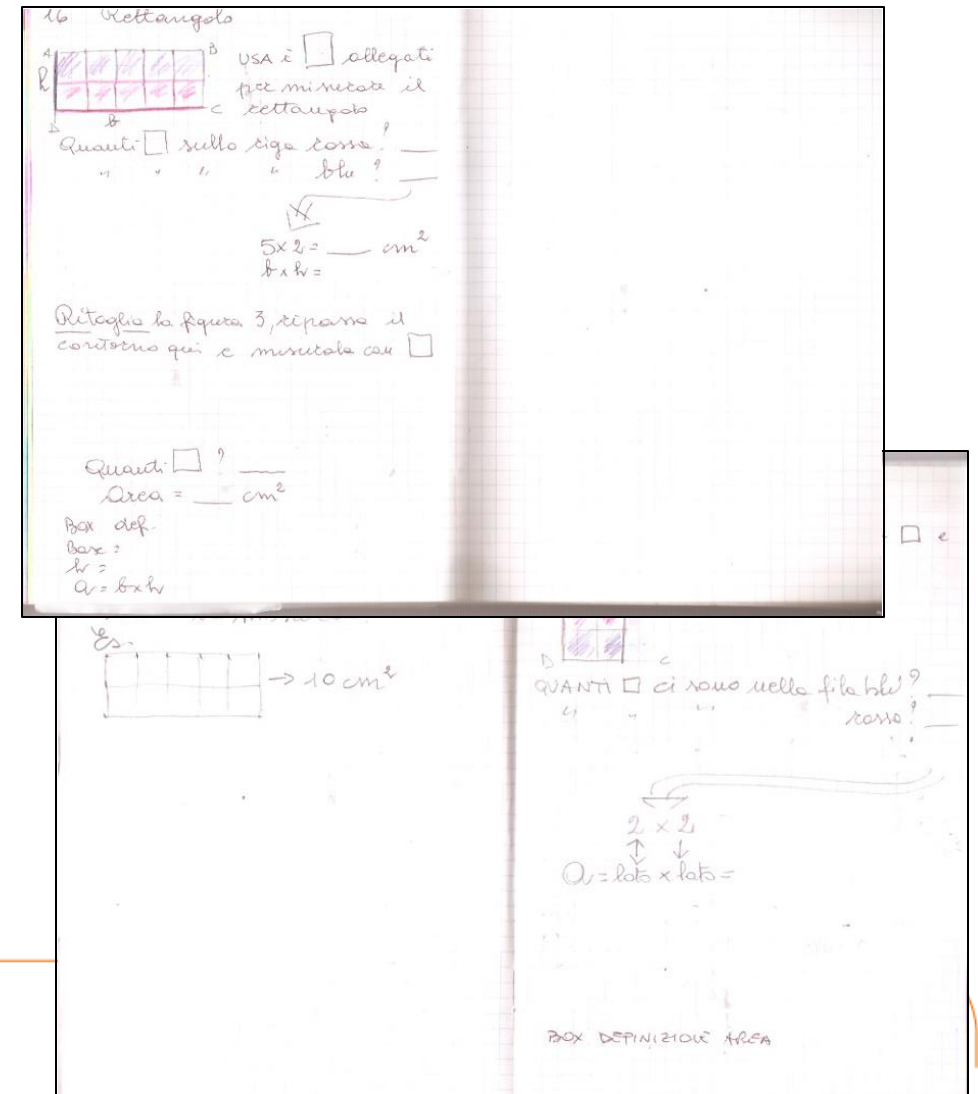 16 Rettangolo
A B
h
D b C
USA i □ allegati
per misurare il
rettangolo
Quanti □ sulla riga rossa? ___
" " " " blu? ___
5x2 = ___ cm²
b x h =
Ritaglia la figura 3, ripassa il
contorno qui e misurala con □
Quanti □ ? ___
Area = ___ cm²
Box def.
Base =
h =
a = b x h
□ e
Es.
→ 10 cm²
D C
QUANTI □ ci sono nella fila blu? ___
" " " rossa? ___
2 x 2
A = lato x lato =
BOX DEFINIZIONE AREA